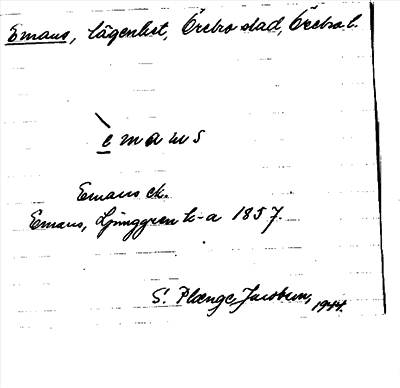 Emaus, lägenhet, Örebro stad, Örebro l.
è m a u s
Emaus ek.
Emaus, Ljunggren k-a 1857.
S. Plænge Jacobson, 1944.